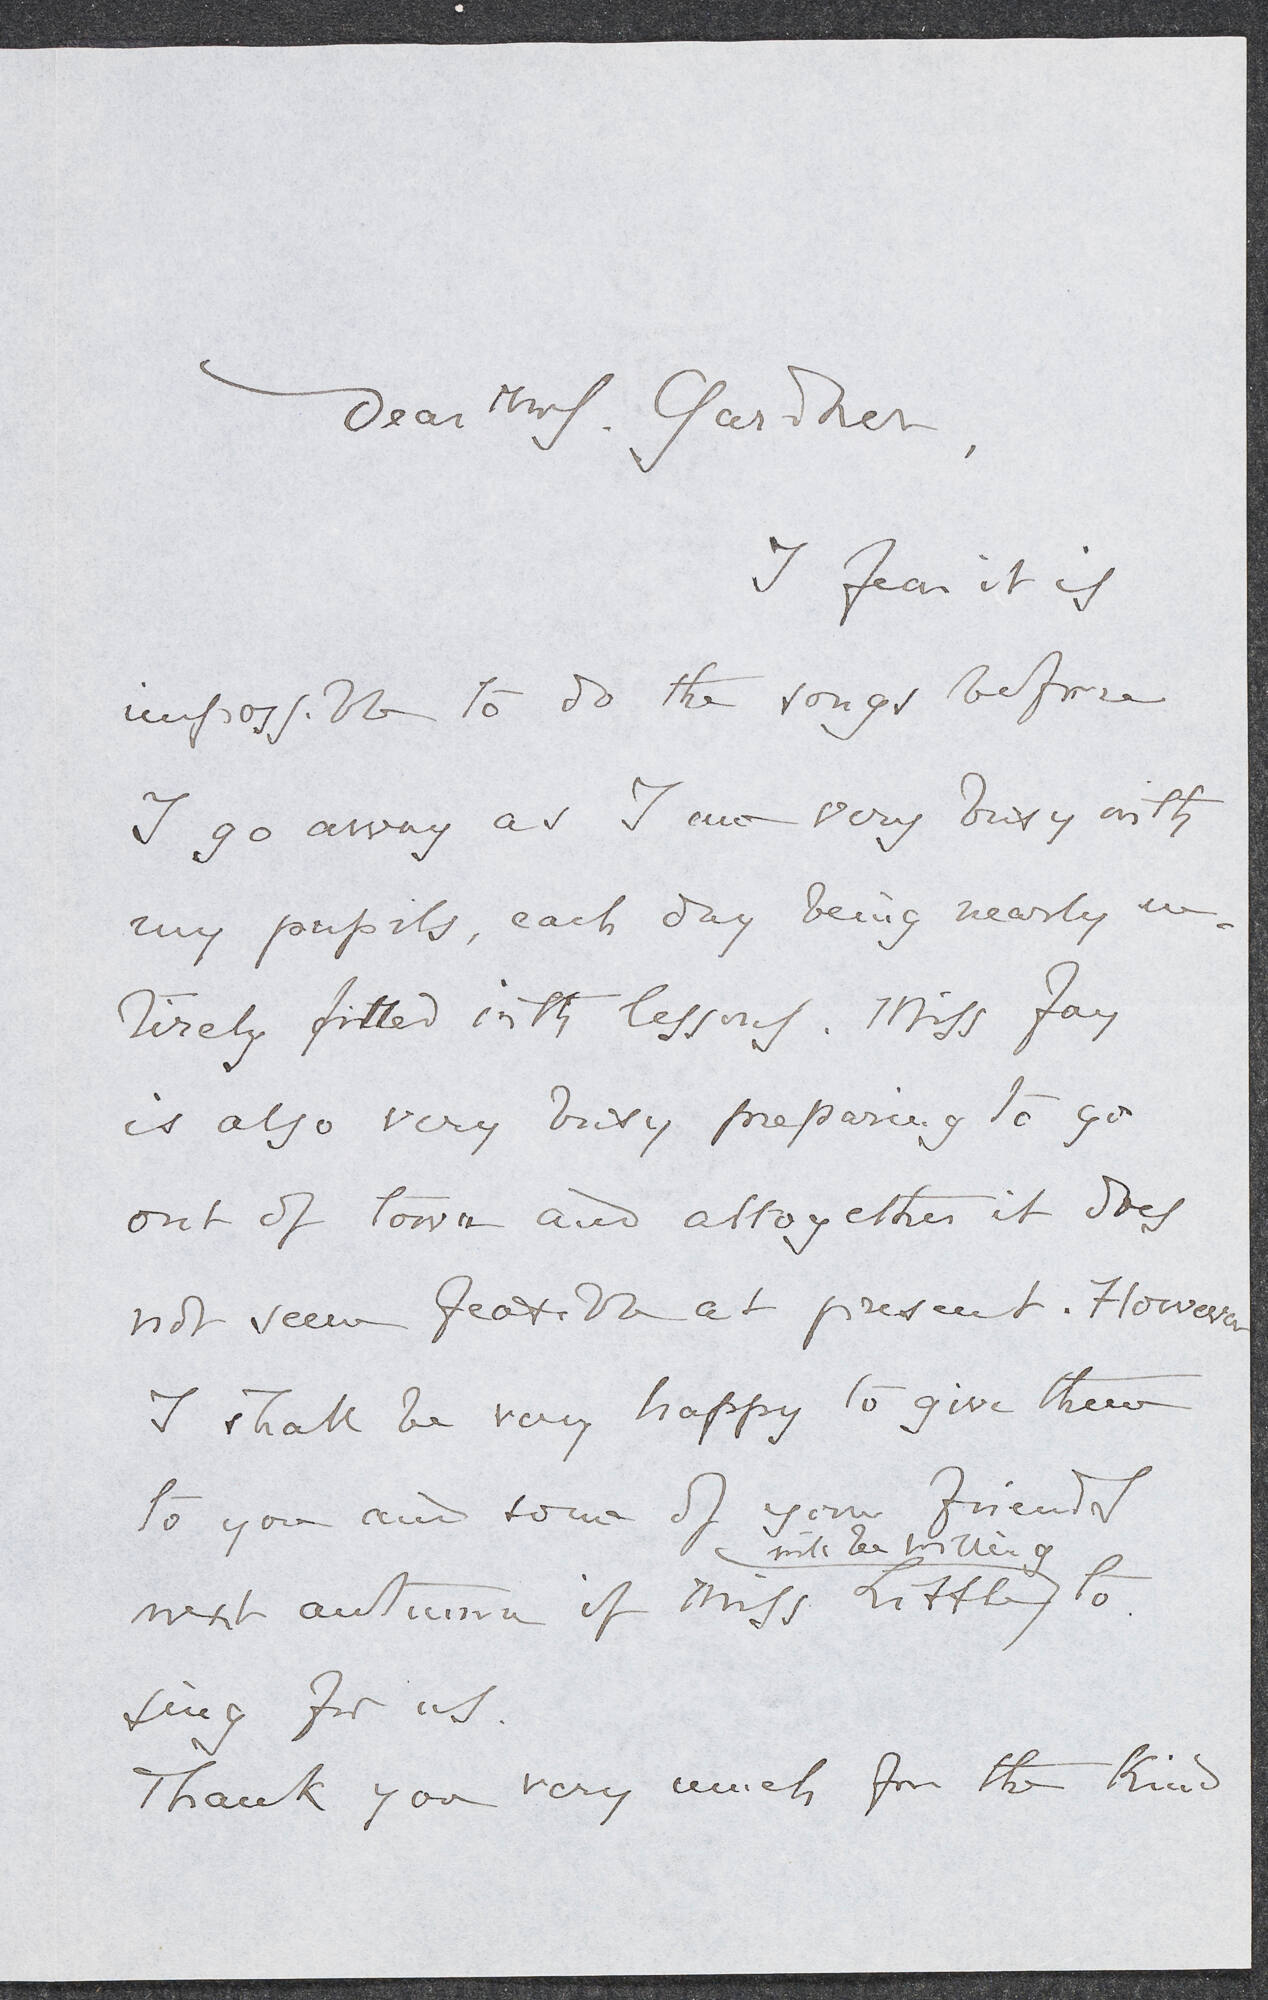 Dear Mrs. Gardner,
I fear it is
impossible to do the songs before
I go away as I am very busy with
my pupils, each day being nearly en-
tirely filled with lessons. Miss Fay
is also very busy preparing to go
out of town and altogether it does
not seem feasible at present. However
I shall be very happy to give them
to you and some of your friends
will be willing
next autumn if Miss Little to
sing for us.
Thank you very much for the kind